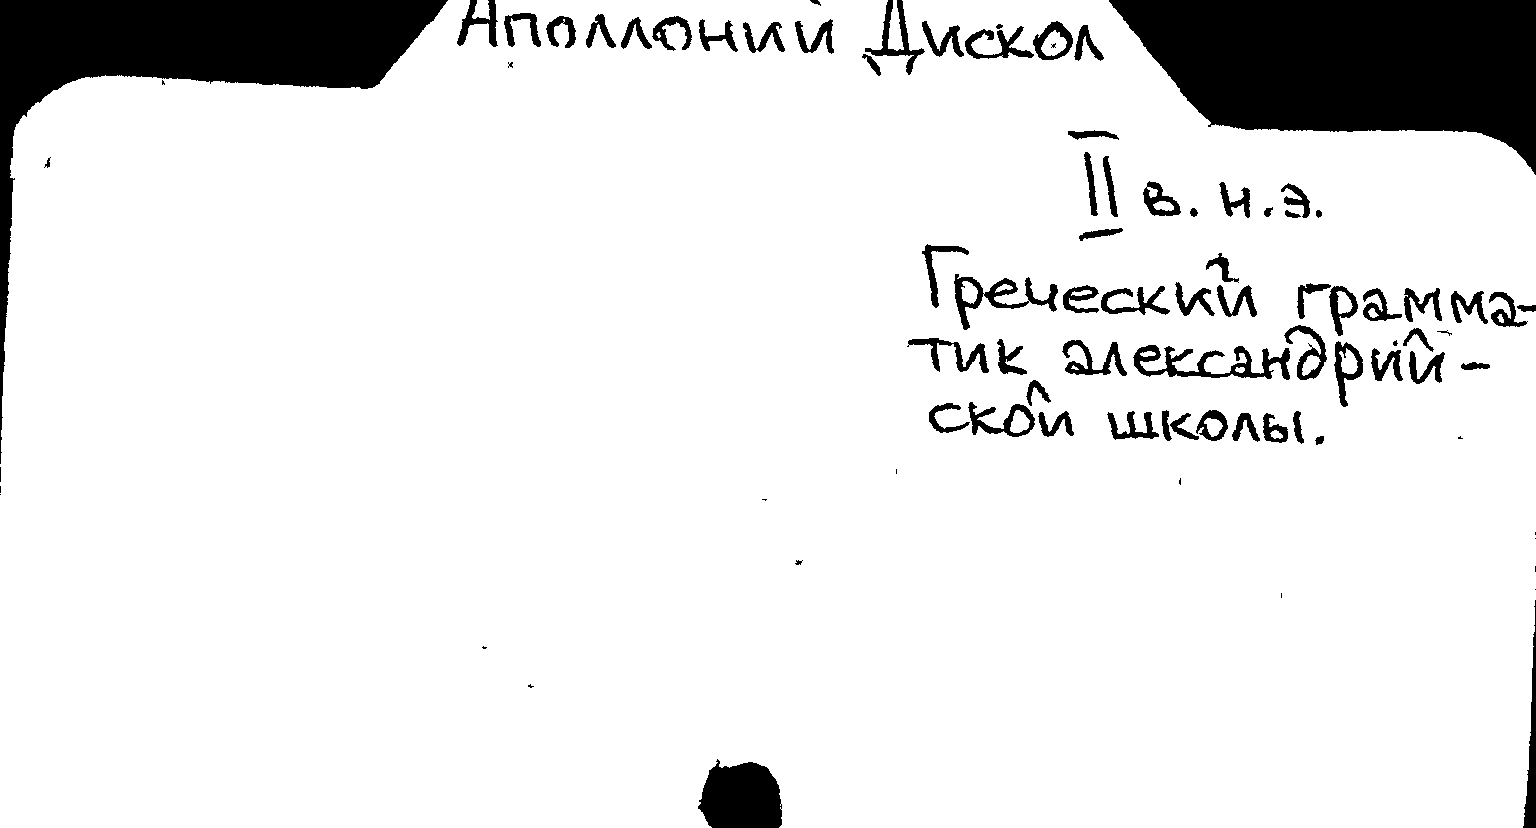 Аполлоний Дискол
II в. н.э.
Греческий грамма-
тик александрий-
ской школы.